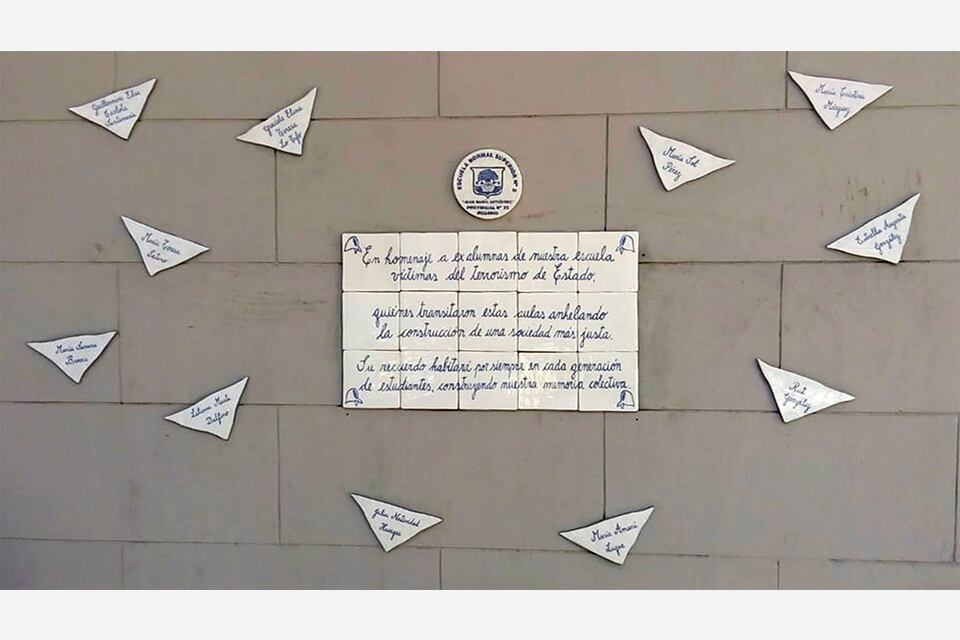 Guillermina Elsa
Carlota
Santamaría
Graciela Elena
Teresa
Lo Tufo
María Cristina
Márquez
María Sol
Pérez
ESCUELA NORMAL SUPERIOR Nº 2
"JUAN MARÍA GUTIÉRREZ"
PROVINCIAL Nº 35
ROSARIO
María Teresa
Latino
Estrella Augusta
González
En homenaje a ex alumnas de nuestra escuela
víctimas del terrorismo de Estado,
quienes transitaron estas aulas anhelando
la construcción de una sociedad más justa.
Su recuerdo habitará por siempre en cada generación
de estudiantes, construyendo nuestra memoria colectiva
María Susana
Brocca
Liliana María
Delfino
Rut
González
Julia Natividad
Huarque
María Amarú
Luque